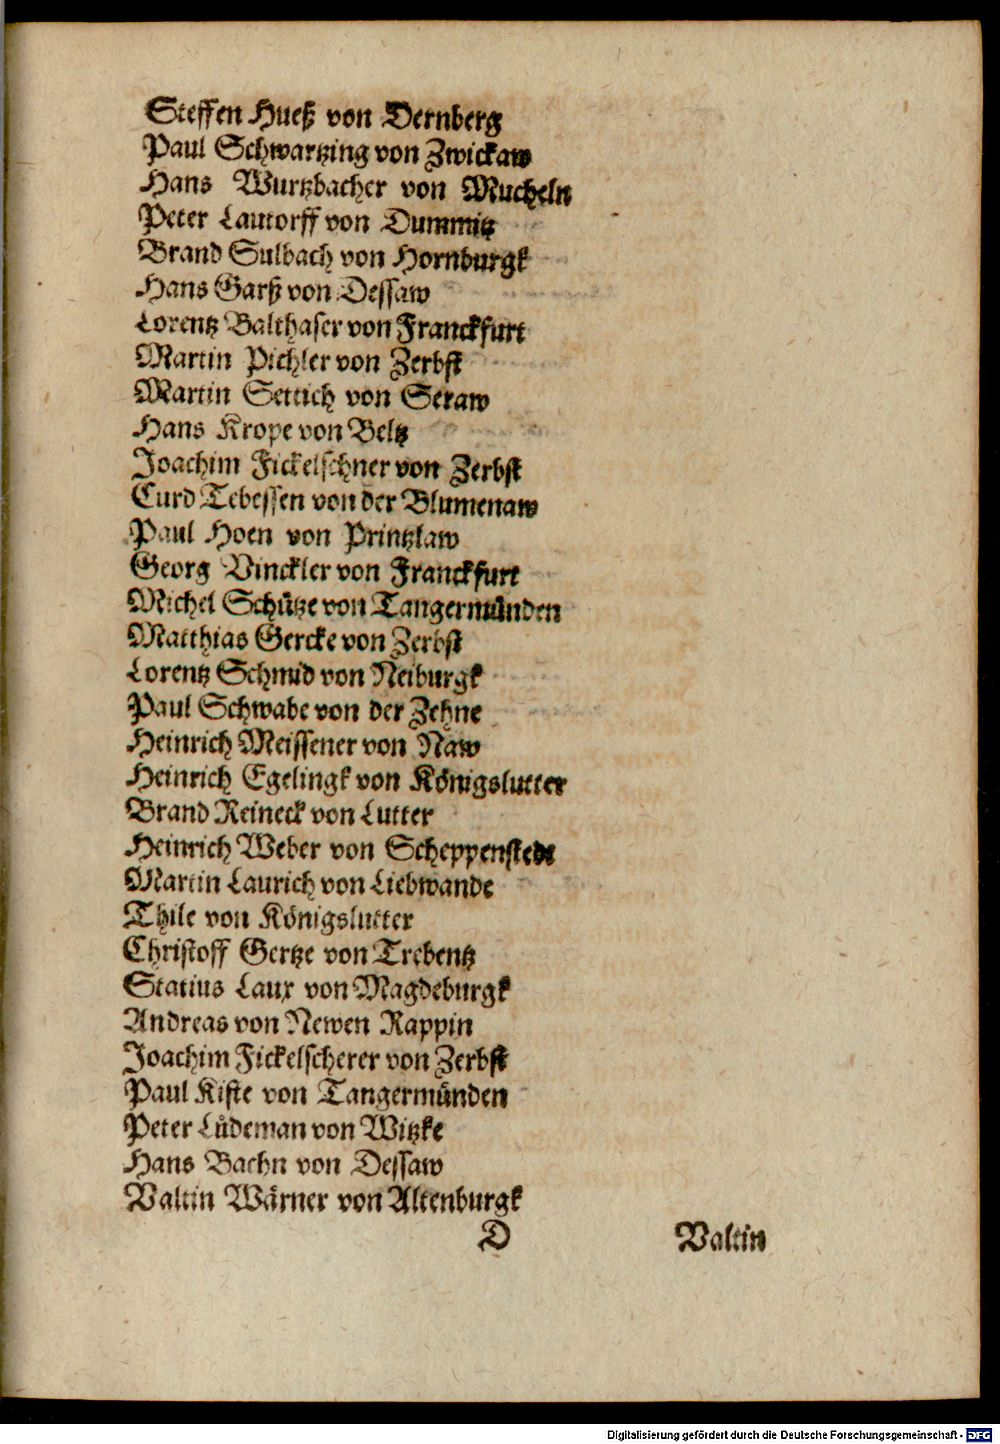 Steffen Hueß von Dernberg
Paul Schwartzing von Zwickaw
Hans Wurtzbacher von Mucheln
Peter Lautorff von Dummitz
Brand Sulbach von Hornburgk
Hans Garß von Dessaw
Lorentz Balthaser von Franckfurt
Martin Pichler von Zerbst
Martin Settich von Seraw
Hans Krope von Beltz
Joachim Fickelschner von Zerbst
Curd Tebessen von der Blumenaw
Paul Hoen von Printzlaw
Georg Vinckler von Franckfurt
Michel Schůtze von Tangermůnden
Matthias Gercke von Zerbst
Lorentz Schmid von Neiburgk
Paul Schwabe von der Zehne
Heinrich Meissener von Naw
Heinrich Egelingk von Königslutter
Brand Reineck von Lutter
Heinrich Weber von Scheppenstede
Martin Laurich von Liebwande
Thile von Königslutter
Christoff Gertze von Trebentz
Statius Laux von Magdeburgk
Andreas von Newen Rappin
Joachim Fickelscherer von Zerbst
Paul Kiste von Tangermůnden
Peter Lůdeman von Witzke
Hans Bachn von Dessaw
Valtin Wärner von Altenburgk
D Valtin
Digitalisierung gefördert durch die Deutsche Forschungsgemeinschaft - DFG